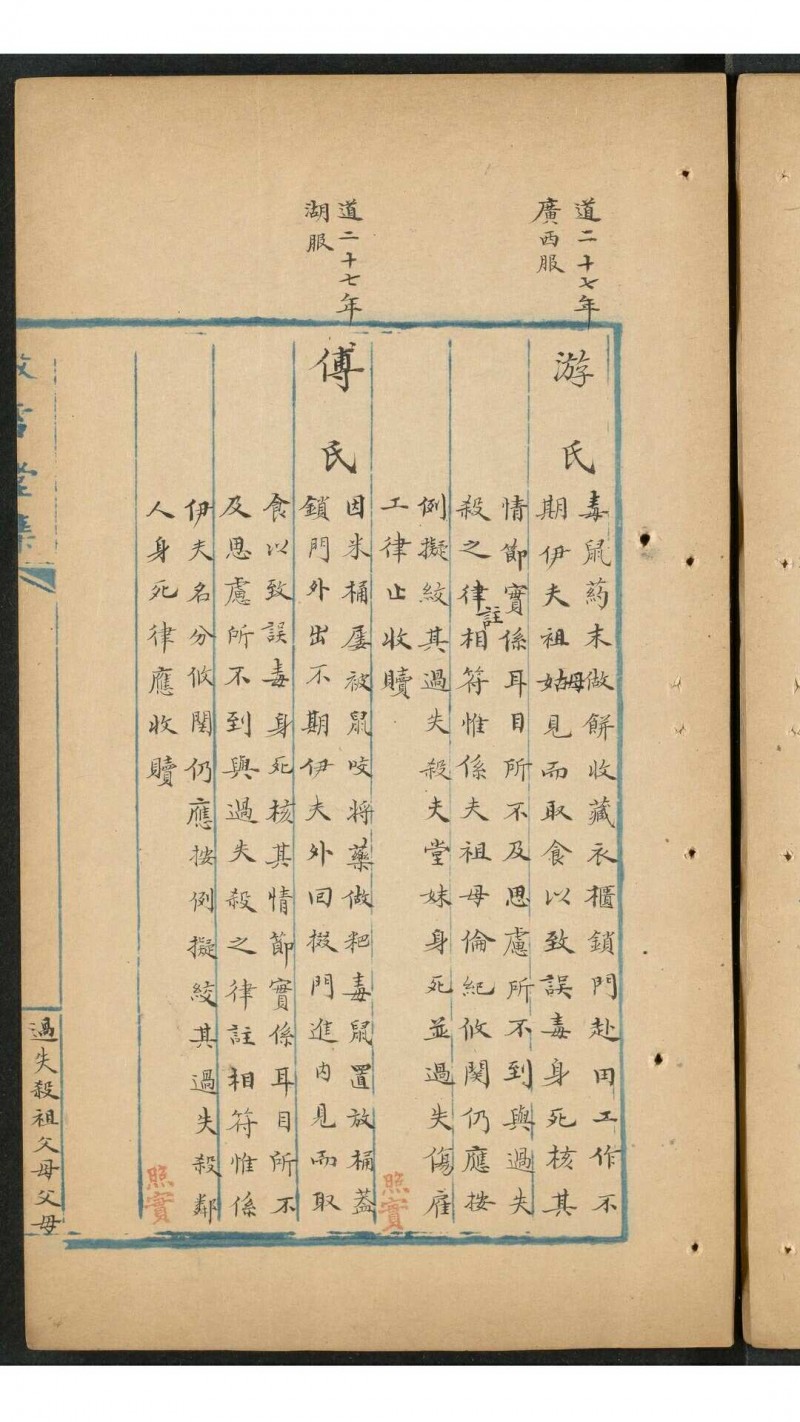 道二十七年
廣西服
游氏
毒鼠药末做餅收藏衣櫃鎖門赴田工作不
期伊夫祖姑母見而取食以致誤毒身死核其
情節實係耳目所不及思慮所不到與過失
殺之律註相符惟係夫祖母倫紀攸関仍應按
例擬絞其過失殺夫堂妹身死並過失傷雇
工律止收贖
照實
道二十七年
湖服
傅氏
因米桶屡被鼠咬将藥做粑毒鼠置放桶蓋
鎖門外出不期伊夫外回掇門進内見而取
食以致誤毒身死核其情節實係耳目所不
及思慮所不到與過失殺之律註相符惟係
伊夫名分攸関仍應按例擬絞其過失殺鄰
人身死律應收贖
照實
過失殺祖父母父母